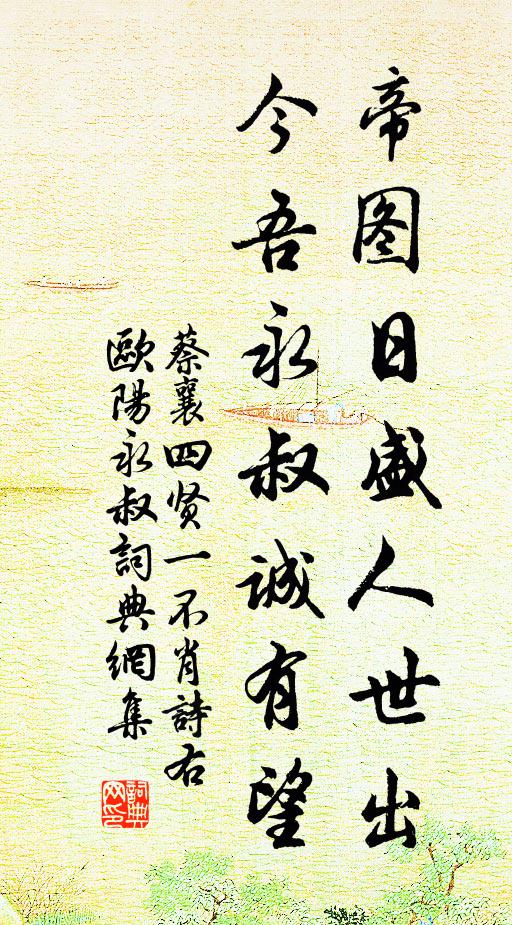 帝图日盛人世出
今吾永叔诚有望
蔡襄四贤一不肖詩右
歐陽永叔詞典網集
詞典网印